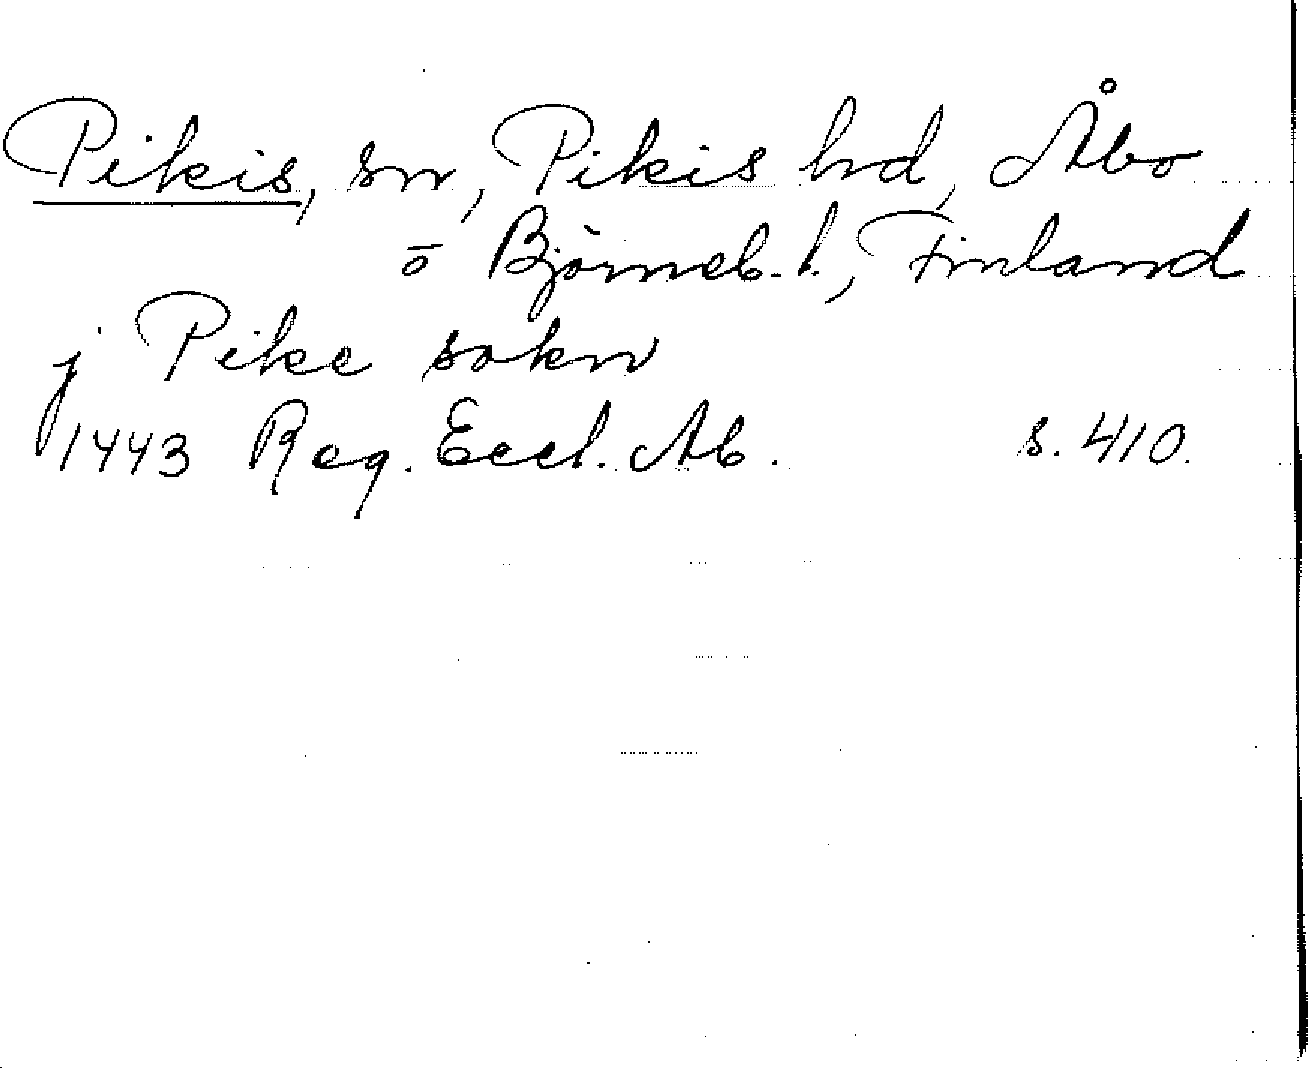 Pikis, sn, Pikis hd, Åbo
o Björneb. l., Finland
j Pike sokn
1443 Reg. Eccl. Ab. s. 410.